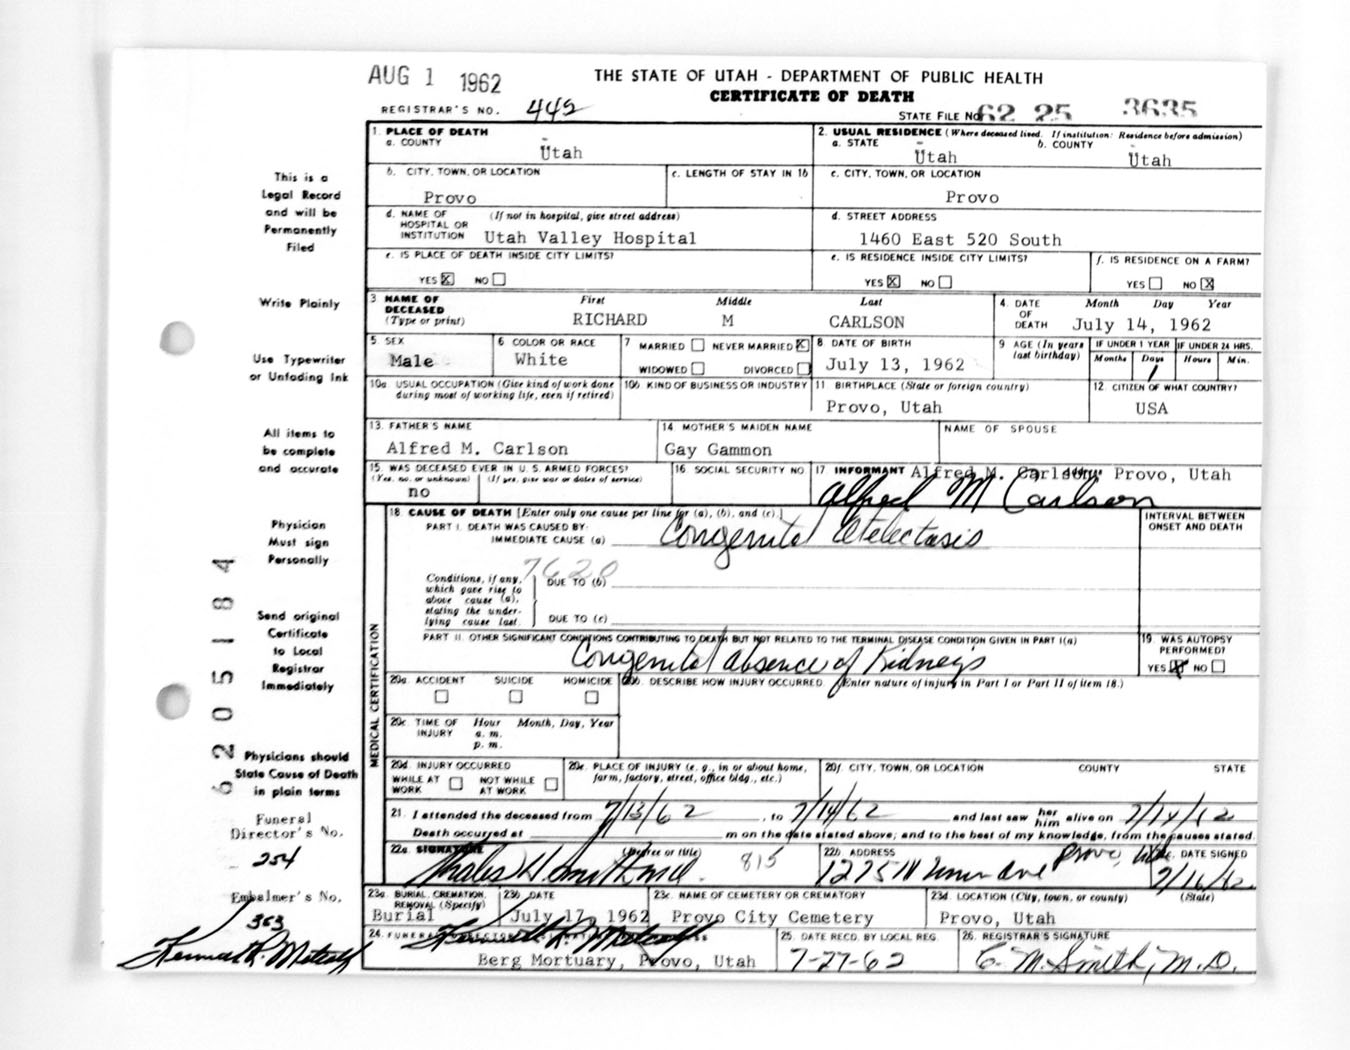 AUG 1 1962
THE STATE OF UTAH - DEPARTMENT OF PUBLIC HEALTH
CERTIFICATE OF DEATH
REGISTRAR'S NO. 442
STATE FILE NO. 62 25 3635
1. PLACE OF DEATH
a. COUNTY
Utah
2. USUAL RESIDENCE (Where deceased lived. If institution: Residence before admission)
a. STATE b. COUNTY
Utah Utah
b. CITY, TOWN, OR LOCATION
Provo
c. LENGTH OF STAY IN 1b
c. CITY, TOWN, OR LOCATION
Provo
d. NAME OF HOSPITAL OR INSTITUTION (If not in hospital, give street address)
Utah Valley Hospital
d. STREET ADDRESS
1460 East 520 South
e. IS PLACE OF DEATH INSIDE CITY LIMITS?
YES X NO
e. IS RESIDENCE INSIDE CITY LIMITS?
YES X NO
f. IS RESIDENCE ON A FARM?
YES NO X
3 NAME OF DECEASED (Type or print)
First Middle Last
RICHARD M CARLSON
4. DATE OF DEATH Month Day Year
July 14, 1962
5. SEX
Male
6 COLOR OR RACE
White
7 MARRIED NEVER MARRIED X
WIDOWED DIVORCED
8 DATE OF BIRTH
July 13, 1962
9 AGE (In years last birthday)
IF UNDER 1 YEAR IF UNDER 24 HRS.
Months Days Hours Min.
1
10a. USUAL OCCUPATION (Give kind of work done during most of working life, even if retired)
10b KIND OF BUSINESS OR INDUSTRY
11 BIRTHPLACE (State or foreign country)
Provo, Utah
12 CITIZEN OF WHAT COUNTRY?
USA
13. FATHER'S NAME
Alfred M. Carlson
14 MOTHER'S MAIDEN NAME
Gay Gammon
NAME OF SPOUSE
15 WAS DECEASED EVER IN U. S. ARMED FORCES?
(Yes, no, or unknown) (If yes, give war or dates of service)
no
16 SOCIAL SECURITY NO
17 INFORMANT Alfred M. Carlson Provo, Utah
Alfred M Carlson
18 CAUSE OF DEATH [Enter only one cause per line for (a), (b), and (c).]
PART I. DEATH WAS CAUSED BY:
IMMEDIATE CAUSE (a)
Congenital Atelectasis
INTERVAL BETWEEN ONSET AND DEATH
7620
Conditions, if any, which gave rise to above cause (a), stating the underlying cause last.
DUE TO (b)
DUE TO (c)
PART II. OTHER SIGNIFICANT CONDITIONS CONTRIBUTING TO DEATH BUT NOT RELATED TO THE TERMINAL DISEASE CONDITION GIVEN IN PART I(a)
Congenital absence of Kidneys
19. WAS AUTOPSY PERFORMED?
YES X NO
MEDICAL CERTIFICATION
20a. ACCIDENT SUICIDE HOMICIDE
20b. DESCRIBE HOW INJURY OCCURRED (Enter nature of injury in Part I or Part II of item 18.)
20c. TIME OF INJURY Hour Month, Day, Year
a. m.
p. m.
20d. INJURY OCCURRED
WHILE AT WORK NOT WHILE AT WORK
20e. PLACE OF INJURY (e. g., in or about home, farm, factory, street, office bldg., etc.)
20f. CITY, TOWN, OR LOCATION COUNTY STATE
21. I attended the deceased from 7/13/62, to 7/14/62 and last saw her him alive on 7/14/62
Death occurred at m on the date stated above; and to the best of my knowledge, from the causes stated.
22a. SIGNATURE (Degree or title)
Thales H Smith MD 815
22b. ADDRESS
1275 N Univ Ave Provo, Utah
DATE SIGNED
7/16/62
23a. BURIAL, CREMATION, REMOVAL (Specify)
Burial
23b. DATE
July 17, 1962
23c. NAME OF CEMETERY OR CREMATORY
Provo City Cemetery
23d. LOCATION (City, town, or county) (State)
Provo, Utah
24.
Kenneth R. Metcalf
Berg Mortuary, Provo, Utah
25. DATE RECD. BY LOCAL REG.
7-27-62
26. REGISTRAR'S SIGNATURE
C. M. Smith, M.D.
This is a
Legal Record
and will be
Permanently
Filed
Write Plainly
Use Typewriter
or Unfading Ink
All items to
be complete
and accurate
Physician
Must sign
Personally
Send original
Certificate
to Local
Registrar
Immediately
Physicians should
State Cause of Death
in plain terms
Funeral
Director's No.
254
Embalmer's No.
363
Kenneth R. Metcalf
62 05184